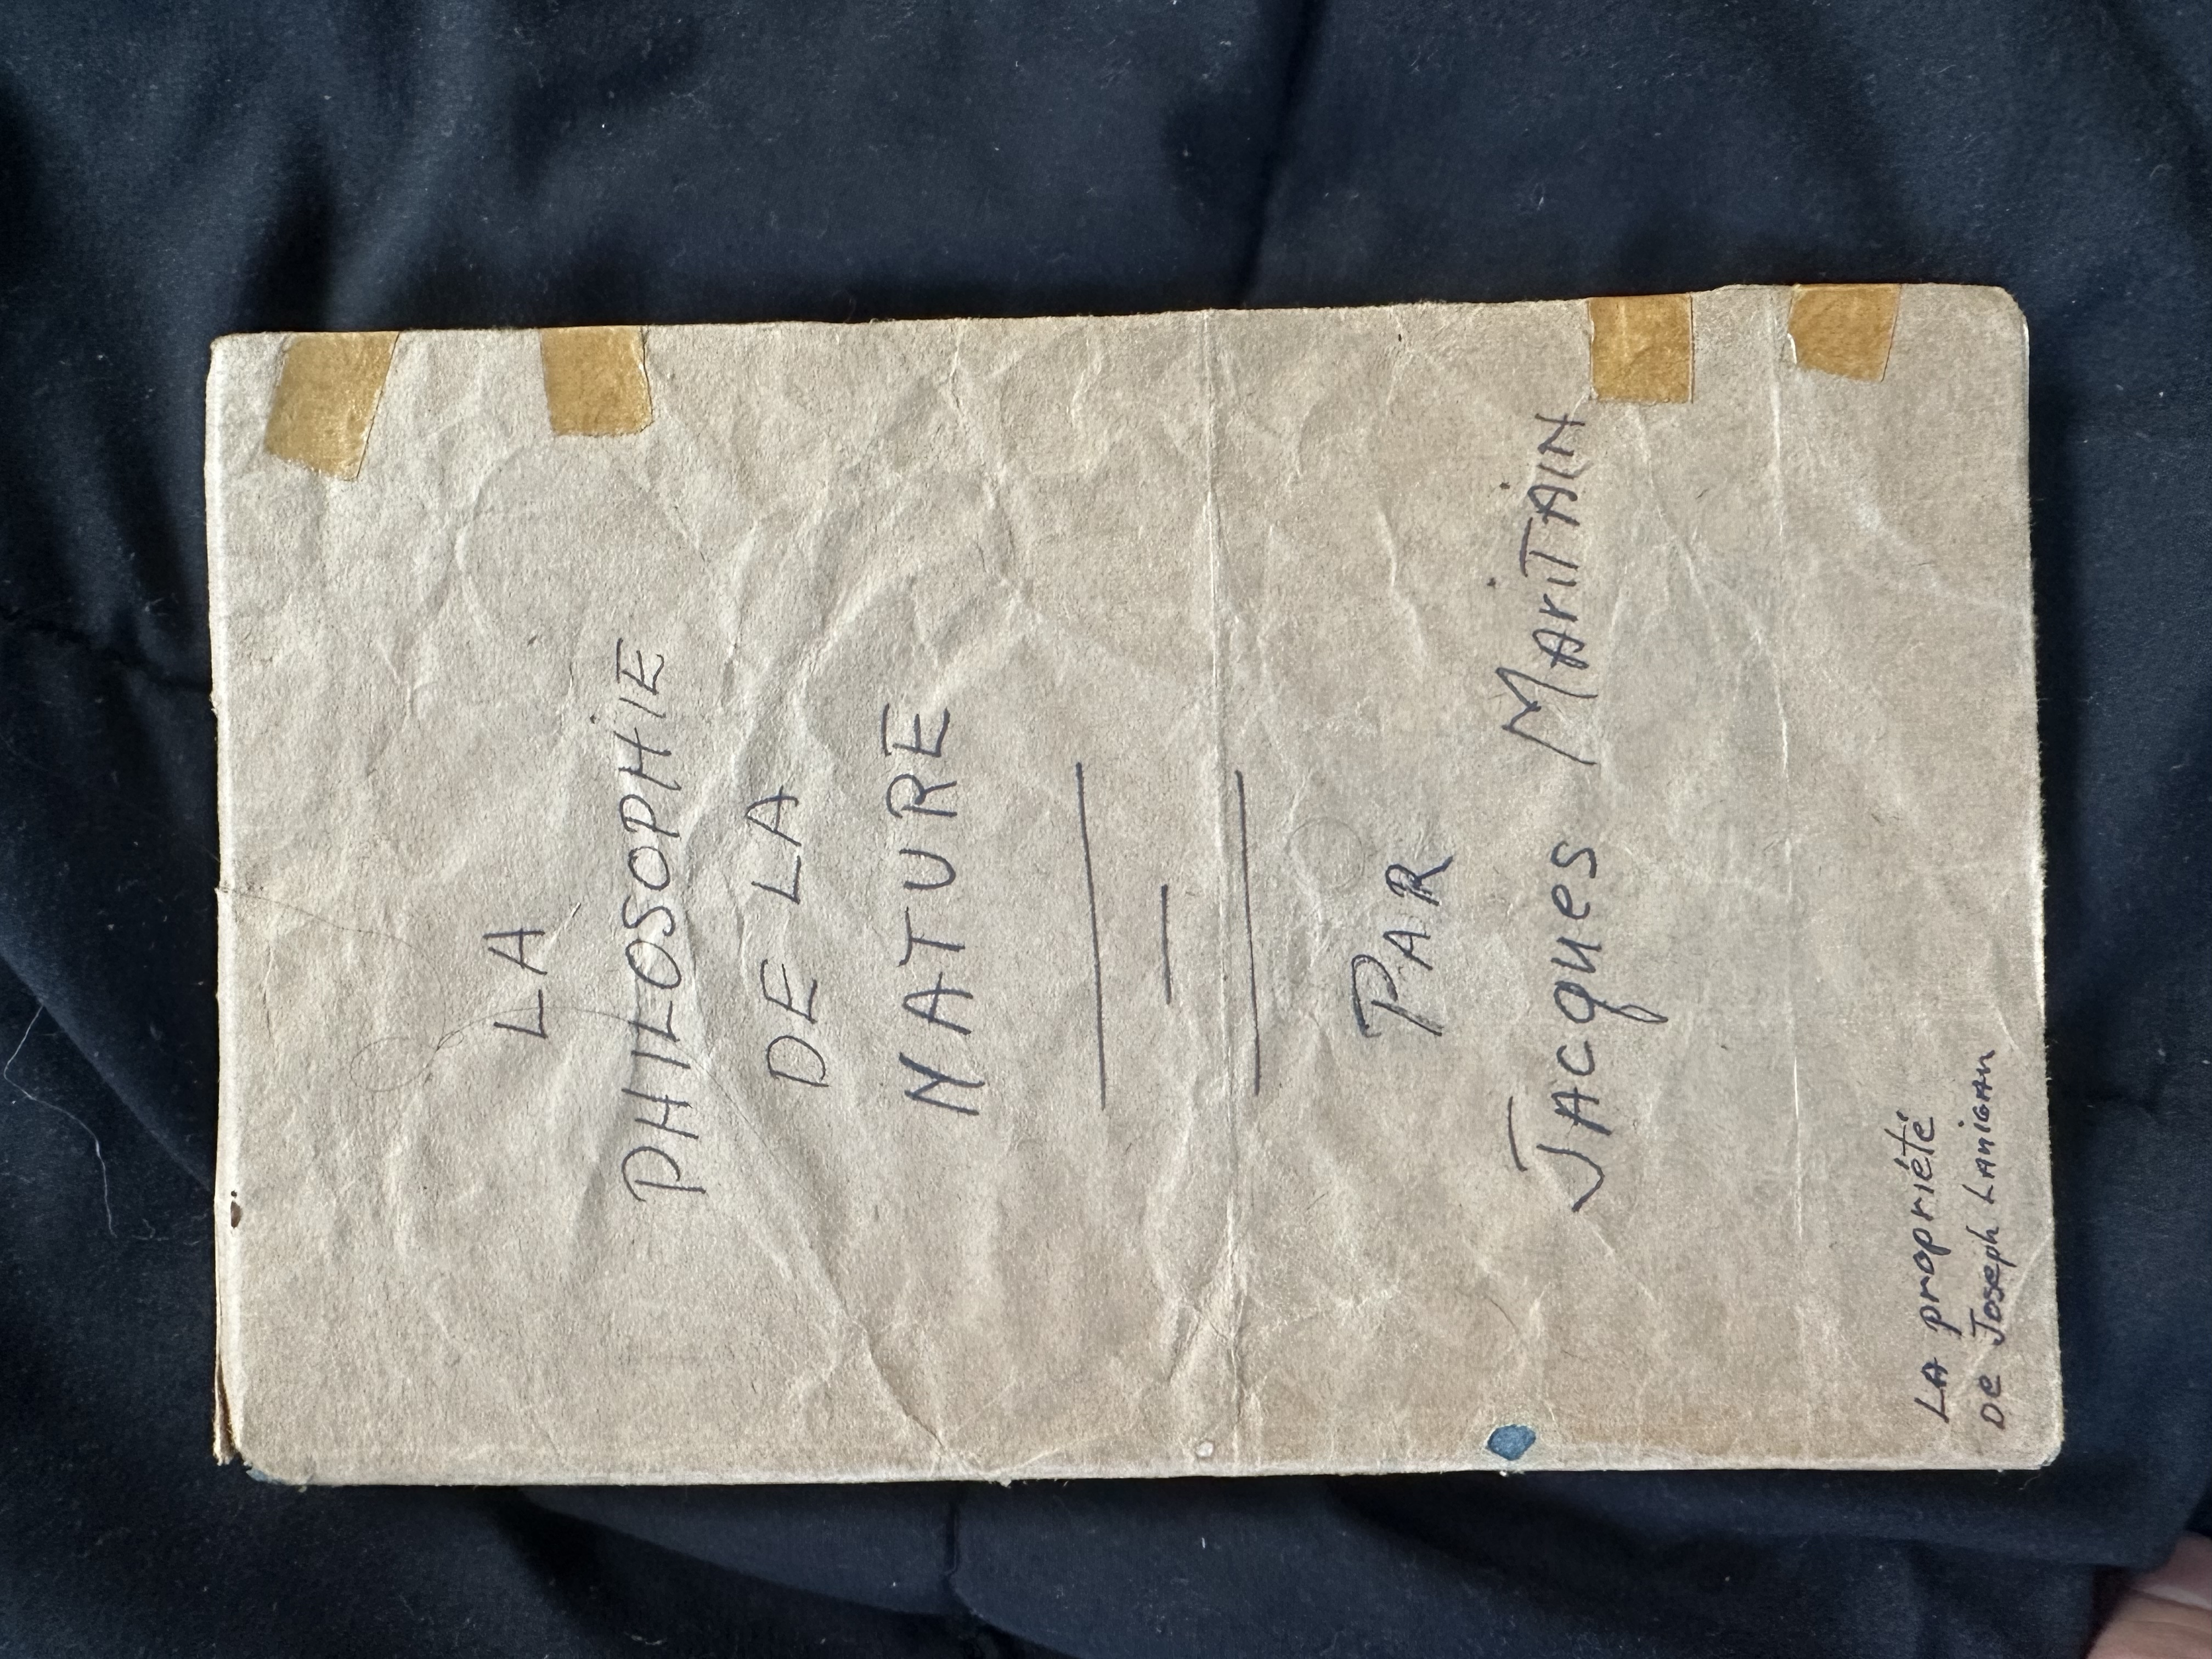 LA
PHILOSOPHIE
DE LA
NATURE
PAR
JACques MAriTAIN
LA propriété
De Joseph LANIGAN